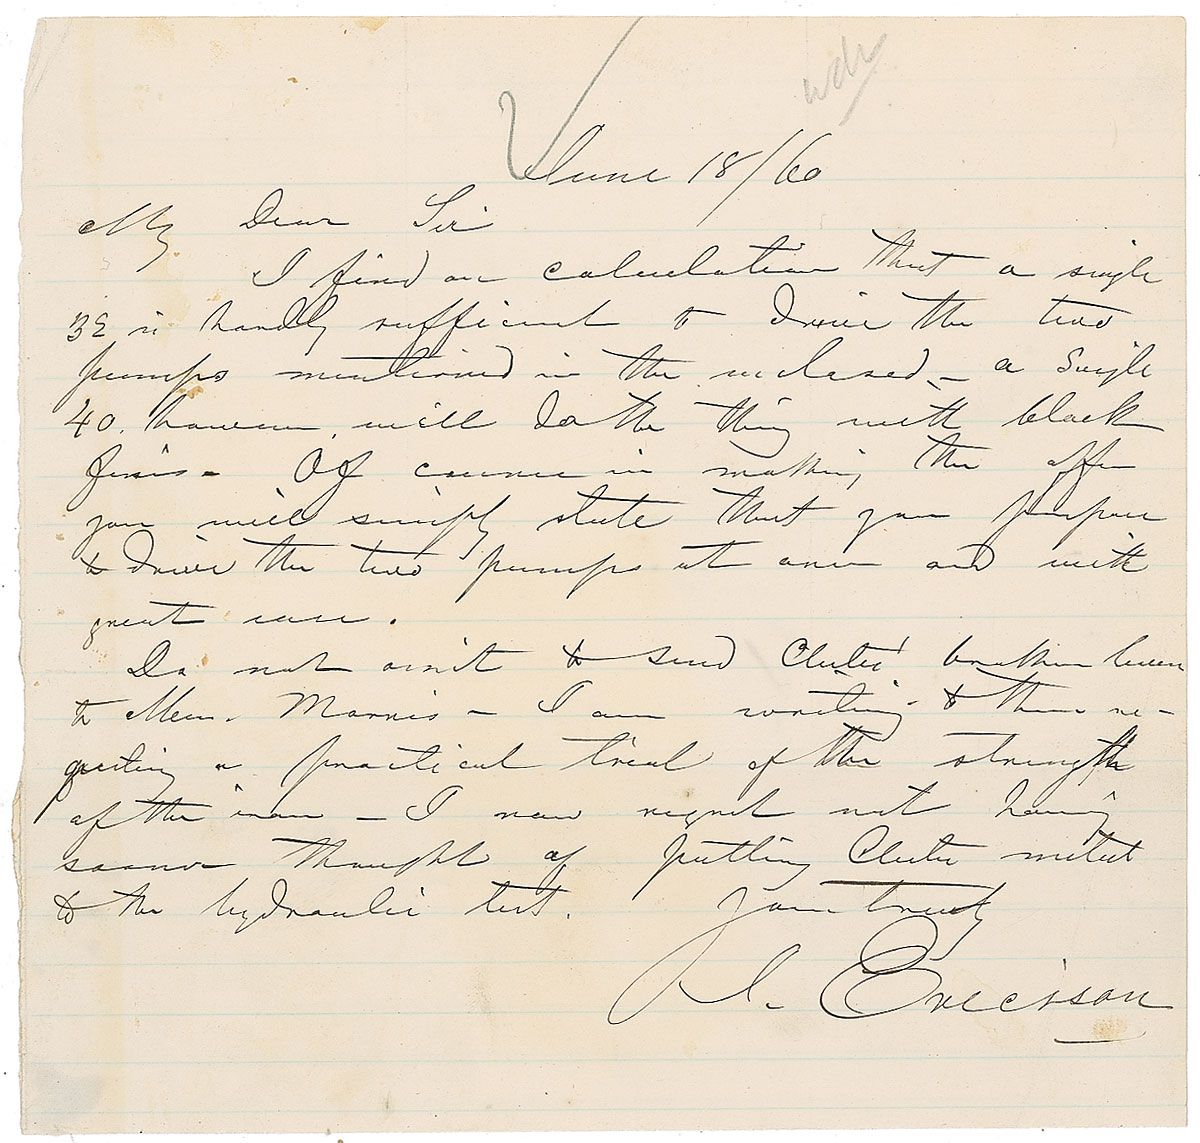 June 18/60
My Dear Sir
I find on calculation that a single
32 is hardly sufficient to drive the two
pumps mentioned in the inclosed – a single
40, however, will do the thing with black
Of course in making the offer
you will simply state that you propose
to drive the two pumps at once and with
great ease.
Do not omit to send Clute's brother's
to Mess. Morris – I am writing to them re-
questing a practical trial of the strength
of the iron – I now regret not having
sooner thought of putting Clute metal
to the hydraulic test. Yours truly
J. Ericsson